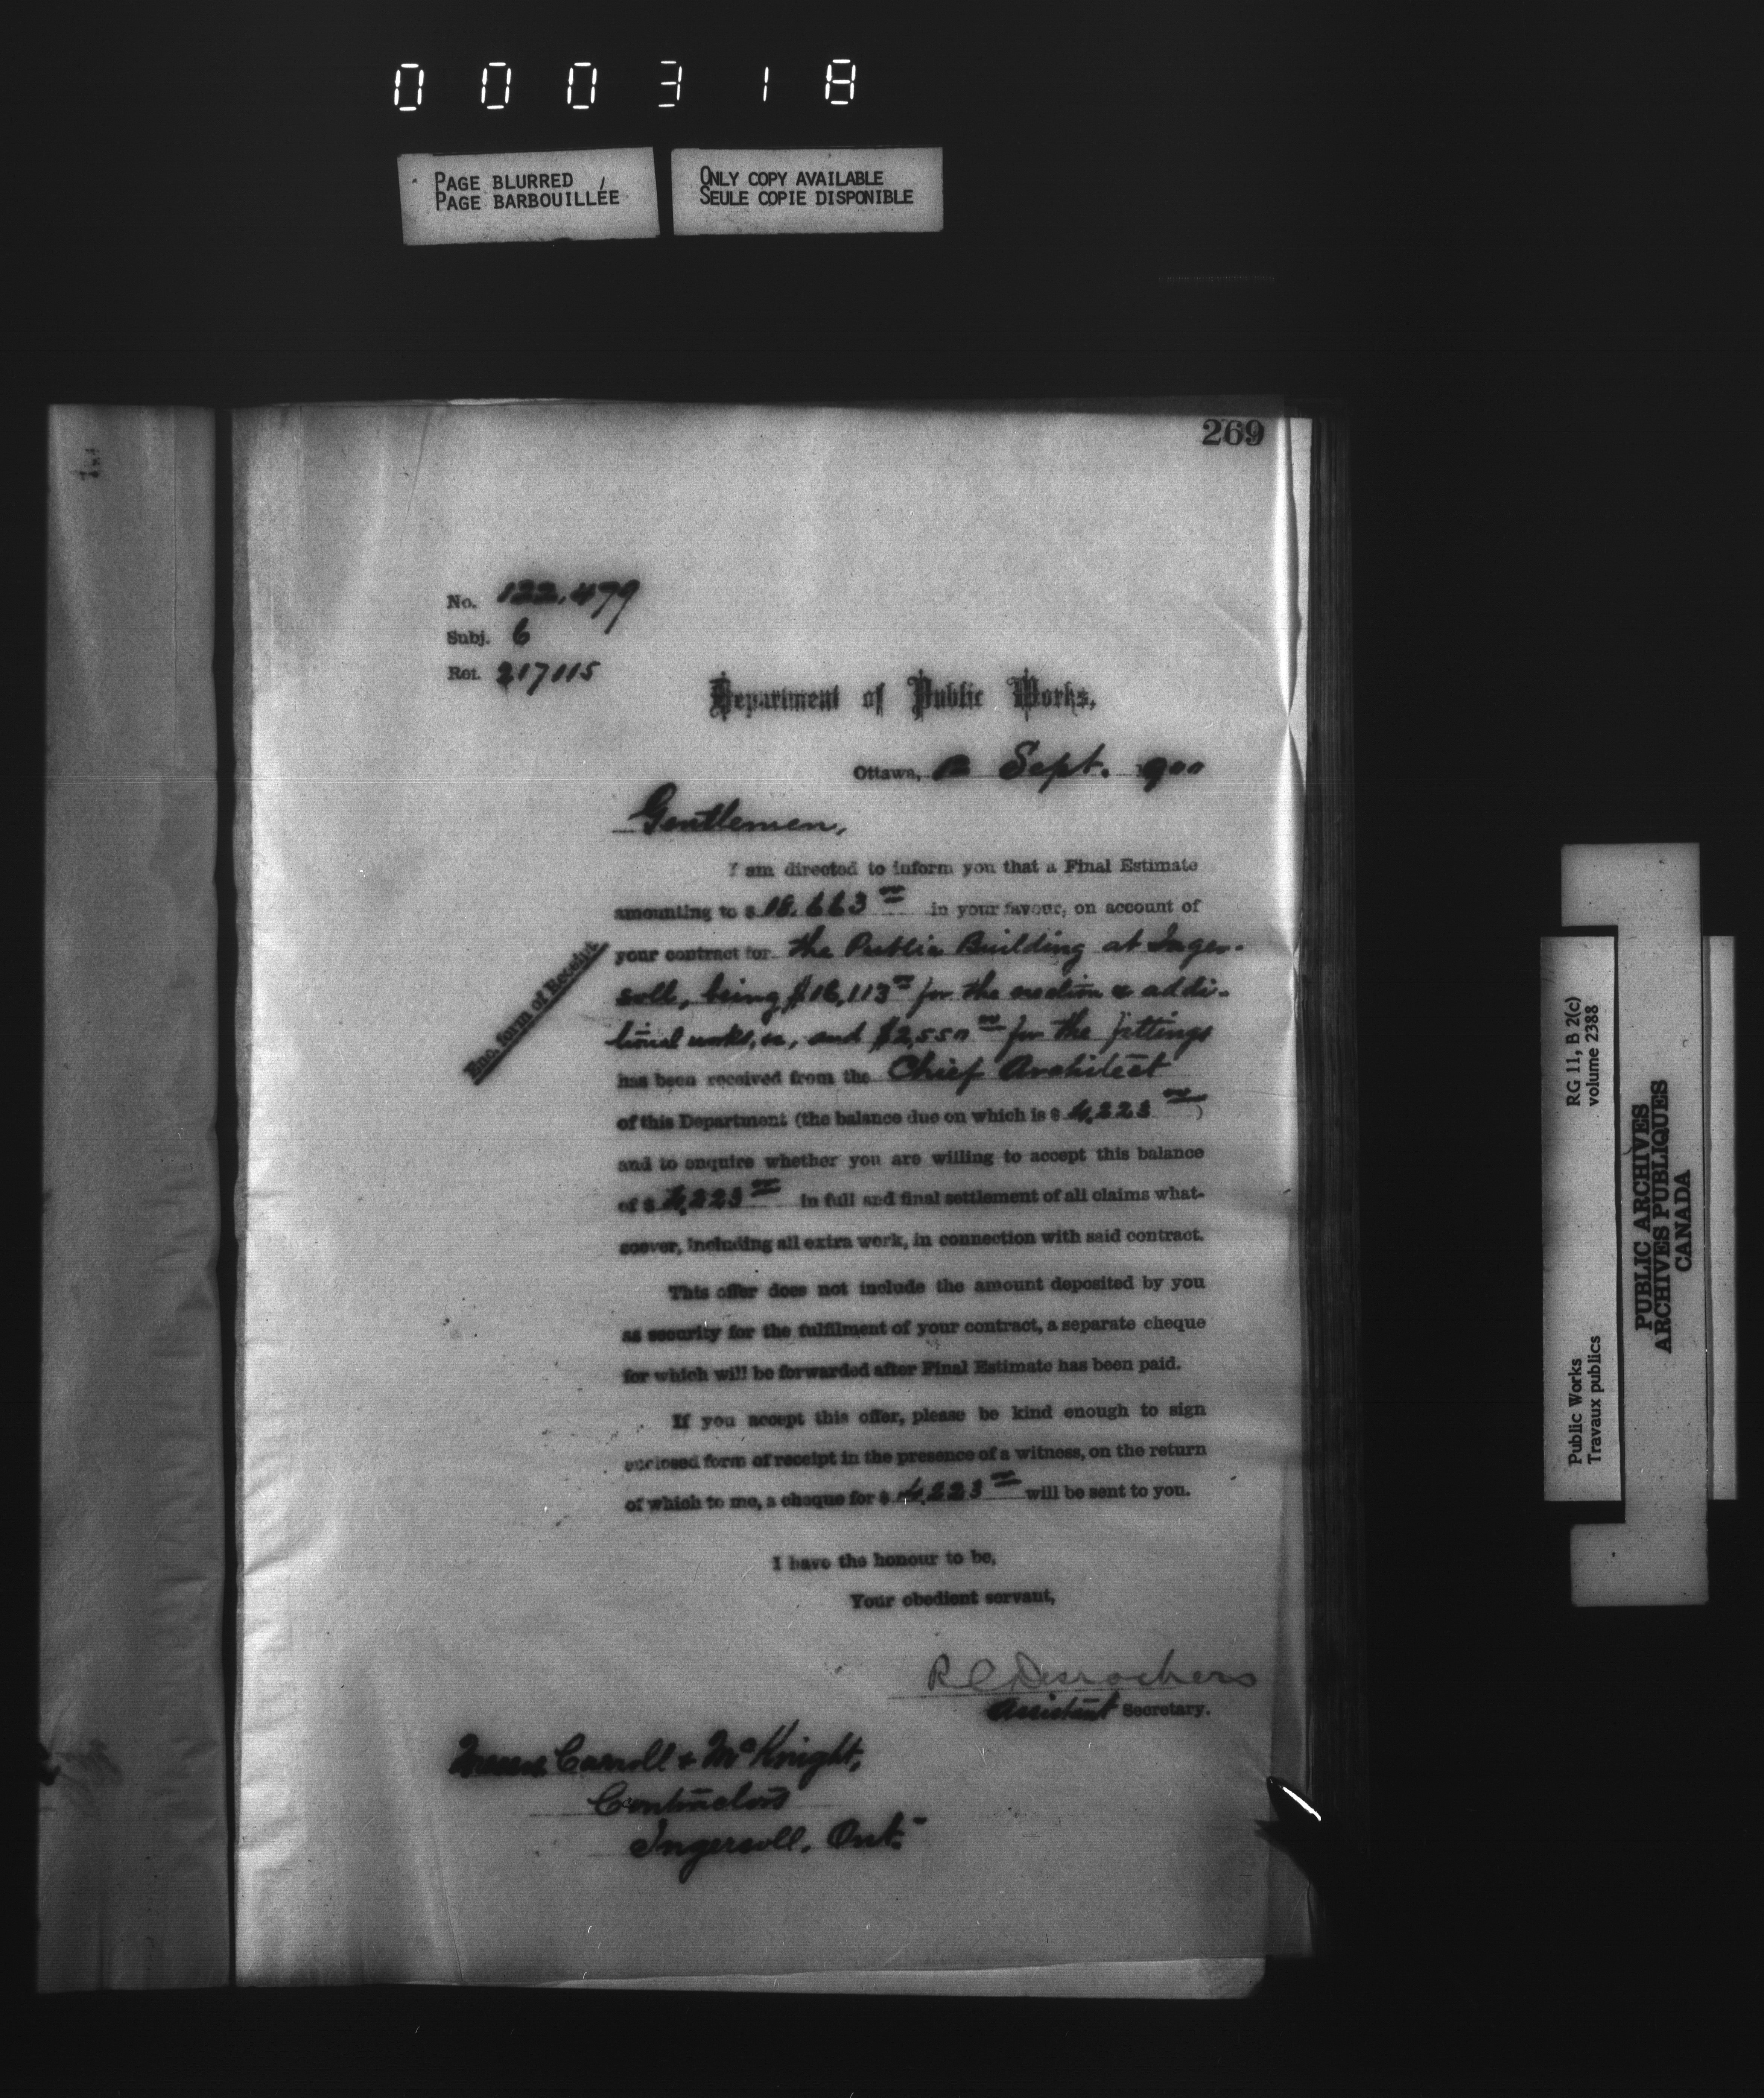 000318
PAGE BLURRED
PAGE BARBOUILLÉE
ONLY COPY AVAILABLE
SEULE COPIE DISPONIBLE
269
No. 122.479
Subj. 6
Ref. 217115
Department of Public Works,
Ottawa, Sept. 1900
Gentlemen,
I am directed to inform you that a Final Estimate
amounting to $ 18,663 00 in your favour, on account of
your contract for the Public Building at Inger-
soll, being $16,113 00 for the erection & addi-
tional works, and $2,550 00 for the fittings
has been received from the Chief Architect
of this Department (the balance due on which is $ 4,223 00 )
and to enquire whether you are willing to accept this balance
of $ 4,223 00 in full and final settlement of all claims what-
soever, including all extra work, in connection with said contract.
Enc. form of Receipt
This offer does not include the amount deposited by you
as security for the fulfilment of your contract, a separate cheque
for which will be forwarded after Final Estimate has been paid.
If you accept this offer, please be kind enough to sign
enclosed form of receipt in the presence of a witness, on the return
of which to me, a cheque for $ 4,223 00 will be sent to you.
I have the honour to be,
Your obedient servant,
R C Desrochers
Assistant Secretary.
Messrs Carroll & McKnight,
Contractors
Ingersoll, Ont.
Public Works
Travaux publics
RG 11, B 2(c)
volume 2388
PUBLIC ARCHIVES
ARCHIVES PUBLIQUES
CANADA